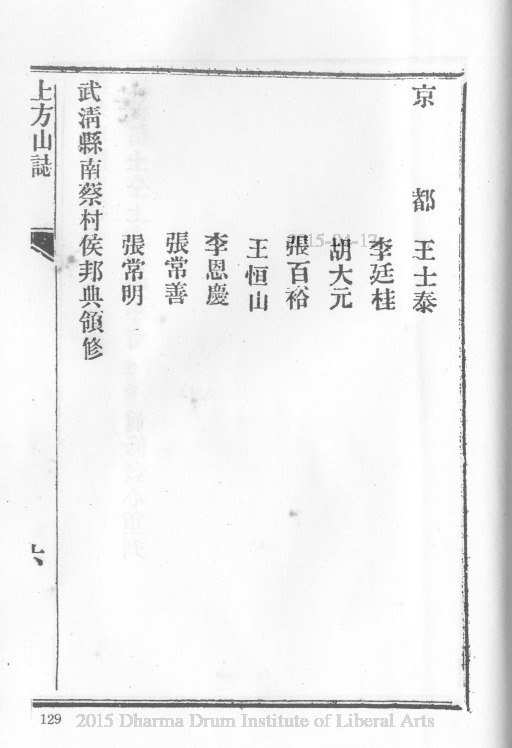 京都 王士泰
李廷桂
胡大元
張百裕
王恒山
李恩慶
張常善
張常明
武清縣南蔡村侯邦典領修
上方山誌
六
2015-04-17
129
2015 Dharma Drum Institute of Liberal Arts